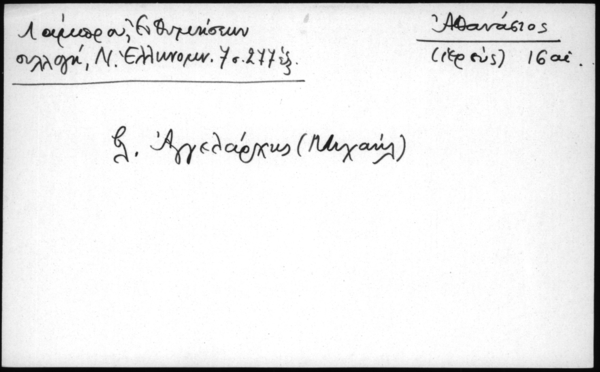 Λάμπρου, Ἐνθυμήσεων
συλλογή, Ν. Ἑλληνομν. 7 σ. 277 ἑξ.
Ἀθανάσιος
(ἱερεύς) 16 αἰ.
βλ. Ἀγγελάρχης (Μιχαήλ)